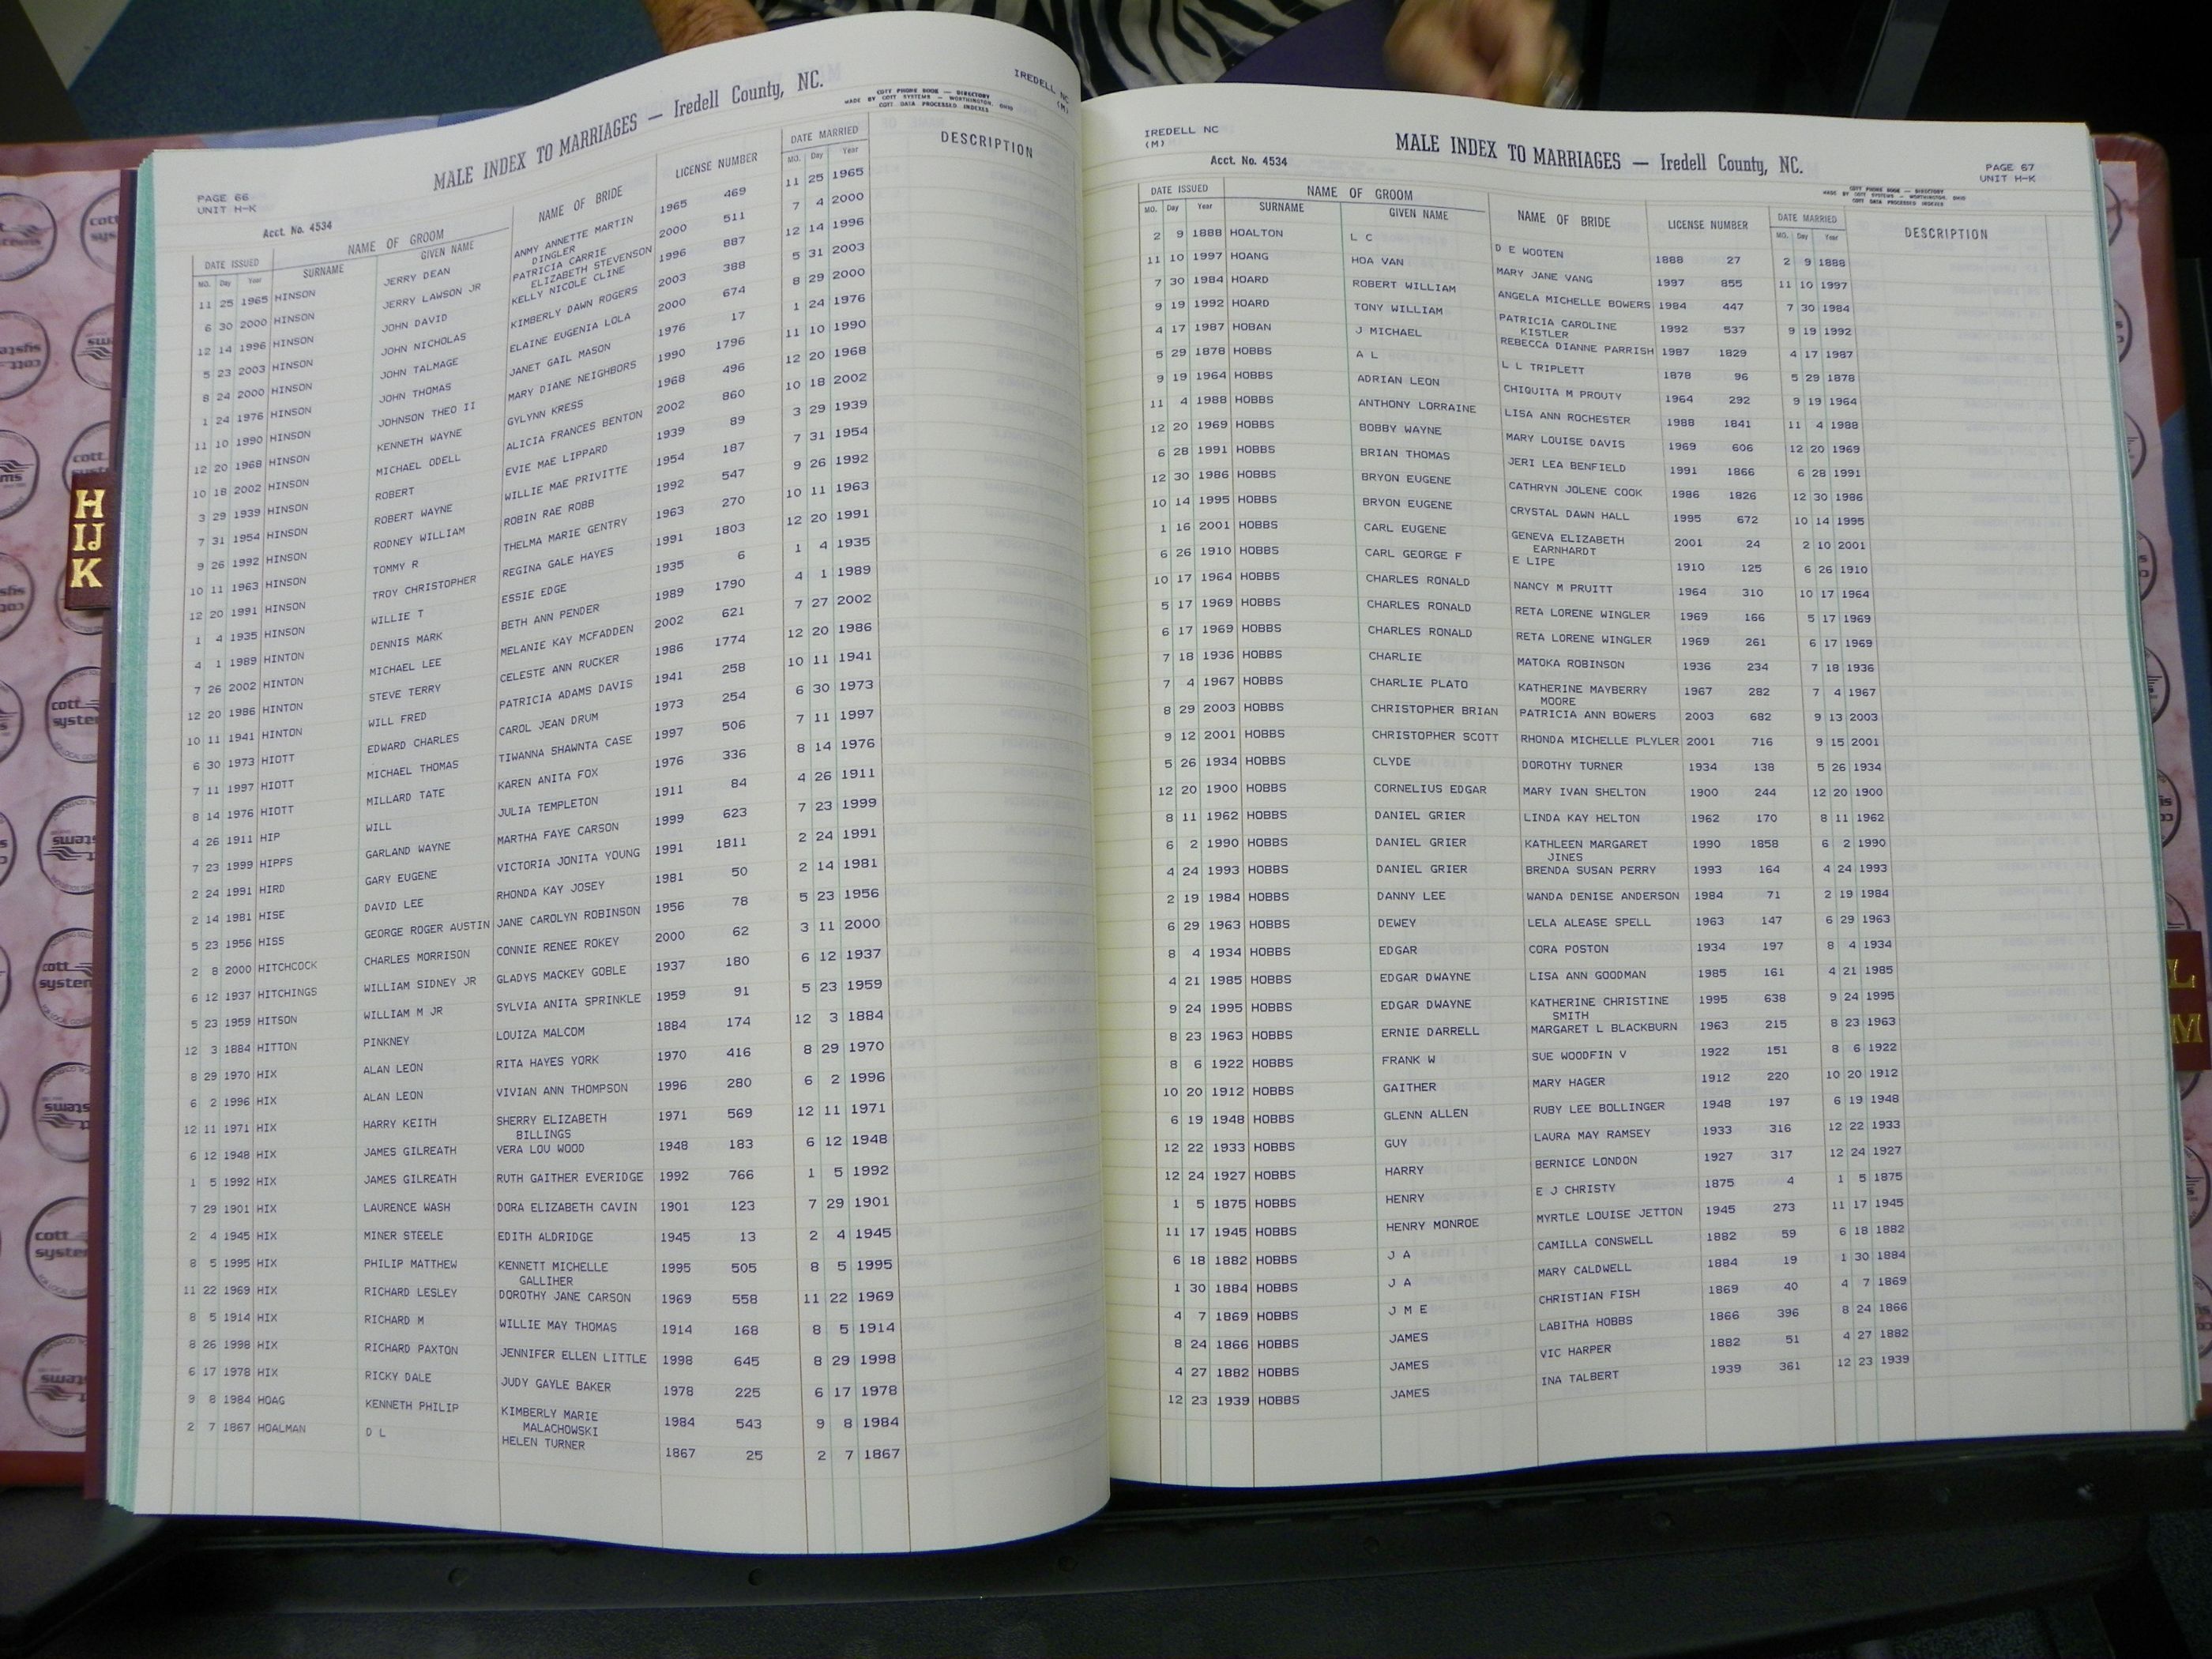 MALE INDEX TO MARRIAGES — Iredell County, NC.
IREDELL NC
(M)
COTT PHONE BOOK — DIRECTORY
MADE BY COTT SYSTEMS — WORTHINGTON, OHIO
COTT DATA PROCESSED INDEXES
PAGE 66
UNIT H-K
Acct. No. 4534
DATE ISSUED NAME OF GROOM NAME OF BRIDE LICENSE NUMBER DATE MARRIED DESCRIPTION
MO. Day Year SURNAME GIVEN NAME MO. Day Year
11 25 1965 HINSON JERRY DEAN ANMY ANNETTE MARTIN 1965 469 11 25 1965
DINGLER
6 30 2000 HINSON JERRY LAWSON JR PATRICIA CARRIE 2000 511 7 4 2000
ELIZABETH STEVENSON
12 14 1996 HINSON JOHN DAVID KELLY NICOLE CLINE 1996 887 12 14 1996
5 23 2003 HINSON JOHN NICHOLAS KIMBERLY DAWN ROGERS 2003 388 5 31 2003
8 24 2000 HINSON JOHN TALMAGE ELAINE EUGENIA LOLA 2000 674 8 29 2000
1 24 1976 HINSON JOHN THOMAS JANET GAIL MASON 1976 17 1 24 1976
11 10 1990 HINSON JOHNSON THEO II MARY DIANE NEIGHBORS 1990 1796 11 10 1990
12 20 1968 HINSON KENNETH WAYNE GYLYNN KRESS 1968 496 12 20 1968
10 18 2002 HINSON MICHAEL ODELL ALICIA FRANCES BENTON 2002 860 10 18 2002
3 29 1939 HINSON ROBERT EVIE MAE LIPPARD 1939 89 3 29 1939
7 31 1954 HINSON ROBERT WAYNE WILLIE MAE PRIVITTE 1954 187 7 31 1954
9 26 1992 HINSON RODNEY WILLIAM ROBIN RAE ROBB 1992 547 9 26 1992
10 11 1963 HINSON TOMMY R THELMA MARIE GENTRY 1963 270 10 11 1963
12 20 1991 HINSON TROY CHRISTOPHER REGINA GALE HAYES 1991 1803 12 20 1991
1 4 1935 HINSON WILLIE T ESSIE EDGE 1935 6 1 4 1935
4 1 1989 HINTON DENNIS MARK BETH ANN PENDER 1989 1790 4 1 1989
7 26 2002 HINTON MICHAEL LEE MELANIE KAY MCFADDEN 2002 621 7 27 2002
12 20 1986 HINTON STEVE TERRY CELESTE ANN RUCKER 1986 1774 12 20 1986
10 11 1941 HINTON WILL FRED PATRICIA ADAMS DAVIS 1941 258 10 11 1941
6 30 1973 HIOTT EDWARD CHARLES CAROL JEAN DRUM 1973 254 6 30 1973
7 11 1997 HIOTT MICHAEL THOMAS TIWANNA SHAWNTA CASE 1997 506 7 11 1997
8 14 1976 HIOTT MILLARD TATE KAREN ANITA FOX 1976 336 8 14 1976
4 26 1911 HIP WILL JULIA TEMPLETON 1911 84 4 26 1911
7 23 1999 HIPPS GARLAND WAYNE MARTHA FAYE CARSON 1999 623 7 23 1999
2 24 1991 HIRD GARY EUGENE VICTORIA JONITA YOUNG 1991 1811 2 24 1991
2 14 1981 HISE DAVID LEE RHONDA KAY JOSEY 1981 50 2 14 1981
5 23 1956 HISS GEORGE ROGER AUSTIN JANE CAROLYN ROBINSON 1956 78 5 23 1956
2 8 2000 HITCHCOCK CHARLES MORRISON CONNIE RENEE ROKEY 2000 62 3 11 2000
6 12 1937 HITCHINGS WILLIAM SIDNEY JR GLADYS MACKEY GOBLE 1937 180 6 12 1937
5 23 1959 HITSON WILLIAM M JR SYLVIA ANITA SPRINKLE 1959 91 5 23 1959
12 3 1884 HITTON PINKNEY LOUIZA MALCOM 1884 174 12 3 1884
8 29 1970 HIX ALAN LEON RITA HAYES YORK 1970 416 8 29 1970
6 2 1996 HIX ALAN LEON VIVIAN ANN THOMPSON 1996 280 6 2 1996
12 11 1971 HIX HARRY KEITH SHERRY ELIZABETH 1971 569 12 11 1971
BILLINGS
6 12 1948 HIX JAMES GILREATH VERA LOU WOOD 1948 183 6 12 1948
1 5 1992 HIX JAMES GILREATH RUTH GAITHER EVERIDGE 1992 766 1 5 1992
7 29 1901 HIX LAURENCE WASH DORA ELIZABETH CAVIN 1901 123 7 29 1901
2 4 1945 HIX MINER STEELE EDITH ALDRIDGE 1945 13 2 4 1945
8 5 1995 HIX PHILIP MATTHEW KENNETT MICHELLE 1995 505 8 5 1995
GALLIHER
11 22 1969 HIX RICHARD LESLEY DOROTHY JANE CARSON 1969 558 11 22 1969
8 5 1914 HIX RICHARD M WILLIE MAY THOMAS 1914 168 8 5 1914
8 26 1998 HIX RICHARD PAXTON JENNIFER ELLEN LITTLE 1998 645 8 29 1998
6 17 1978 HIX RICKY DALE JUDY GAYLE BAKER 1978 225 6 17 1978
9 8 1984 HOAG KENNETH PHILIP KIMBERLY MARIE 1984 543 9 8 1984
MALACHOWSKI
2 7 1867 HOALMAN D L HELEN TURNER 1867 25 2 7 1867
IREDELL NC
(M)
Acct. No. 4534
MALE INDEX TO MARRIAGES — Iredell County, NC.
PAGE 67
UNIT H-K
COTT PHONE BOOK — DIRECTORY
MADE BY COTT SYSTEMS — WORTHINGTON, OHIO
COTT DATA PROCESSED INDEXES
DATE ISSUED NAME OF GROOM NAME OF BRIDE LICENSE NUMBER DATE MARRIED DESCRIPTION
MO. Day Year SURNAME GIVEN NAME MO. Day Year
2 9 1888 HOALTON L C D E WOOTEN 1888 27 2 9 1888
11 10 1997 HOANG HOA VAN MARY JANE VANG 1997 855 11 10 1997
7 30 1984 HOARD ROBERT WILLIAM ANGELA MICHELLE BOWERS 1984 447 7 30 1984
9 19 1992 HOARD TONY WILLIAM PATRICIA CAROLINE 1992 537 9 19 1992
KISTLER
4 17 1987 HOBAN J MICHAEL REBECCA DIANNE PARRISH 1987 1829 4 17 1987
5 29 1878 HOBBS A L L L TRIPLETT 1878 96 5 29 1878
9 19 1964 HOBBS ADRIAN LEON CHIQUITA M PROUTY 1964 292 9 19 1964
11 4 1988 HOBBS ANTHONY LORRAINE LISA ANN ROCHESTER 1988 1841 11 4 1988
12 20 1969 HOBBS BOBBY WAYNE MARY LOUISE DAVIS 1969 606 12 20 1969
6 28 1991 HOBBS BRIAN THOMAS JERI LEA BENFIELD 1991 1866 6 28 1991
12 30 1986 HOBBS BRYON EUGENE CATHRYN JOLENE COOK 1986 1826 12 30 1986
10 14 1995 HOBBS BRYON EUGENE CRYSTAL DAWN HALL 1995 672 10 14 1995
1 16 2001 HOBBS CARL EUGENE GENEVA ELIZABETH 2001 24 2 10 2001
EARNHARDT
6 26 1910 HOBBS CARL GEORGE F E LIPE 1910 125 6 26 1910
10 17 1964 HOBBS CHARLES RONALD NANCY M PRUITT 1964 310 10 17 1964
5 17 1969 HOBBS CHARLES RONALD RETA LORENE WINGLER 1969 166 5 17 1969
6 17 1969 HOBBS CHARLES RONALD RETA LORENE WINGLER 1969 261 6 17 1969
7 18 1936 HOBBS CHARLIE MATOKA ROBINSON 1936 234 7 18 1936
7 4 1967 HOBBS CHARLIE PLATO KATHERINE MAYBERRY 1967 282 7 4 1967
MOORE
8 29 2003 HOBBS CHRISTOPHER BRIAN PATRICIA ANN BOWERS 2003 682 9 13 2003
9 12 2001 HOBBS CHRISTOPHER SCOTT RHONDA MICHELLE PLYLER 2001 716 9 15 2001
5 26 1934 HOBBS CLYDE DOROTHY TURNER 1934 138 5 26 1934
12 20 1900 HOBBS CORNELIUS EDGAR MARY IVAN SHELTON 1900 244 12 20 1900
8 11 1962 HOBBS DANIEL GRIER LINDA KAY HELTON 1962 170 8 11 1962
6 2 1990 HOBBS DANIEL GRIER KATHLEEN MARGARET 1990 1858 6 2 1990
JINES
4 24 1993 HOBBS DANIEL GRIER BRENDA SUSAN PERRY 1993 164 4 24 1993
2 19 1984 HOBBS DANNY LEE WANDA DENISE ANDERSON 1984 71 2 19 1984
6 29 1963 HOBBS DEWEY LELA ALEASE SPELL 1963 147 6 29 1963
8 4 1934 HOBBS EDGAR CORA POSTON 1934 197 8 4 1934
4 21 1985 HOBBS EDGAR DWAYNE LISA ANN GOODMAN 1985 161 4 21 1985
9 24 1995 HOBBS EDGAR DWAYNE KATHERINE CHRISTINE 1995 638 9 24 1995
SMITH
8 23 1963 HOBBS ERNIE DARRELL MARGARET L BLACKBURN 1963 215 8 23 1963
8 6 1922 HOBBS FRANK W SUE WOODFIN V 1922 151 8 6 1922
10 20 1912 HOBBS GAITHER MARY HAGER 1912 220 10 20 1912
6 19 1948 HOBBS GLENN ALLEN RUBY LEE BOLLINGER 1948 197 6 19 1948
12 22 1933 HOBBS GUY LAURA MAY RAMSEY 1933 316 12 22 1933
12 24 1927 HOBBS HARRY BERNICE LONDON 1927 317 12 24 1927
1 5 1875 HOBBS HENRY E J CHRISTY 1875 4 1 5 1875
11 17 1945 HOBBS HENRY MONROE MYRTLE LOUISE JETTON 1945 273 11 17 1945
6 18 1882 HOBBS J A CAMILLA CONSWELL 1882 59 6 18 1882
1 30 1884 HOBBS J A MARY CALDWELL 1884 19 1 30 1884
4 7 1869 HOBBS J M E CHRISTIAN FISH 1869 40 4 7 1869
8 24 1866 HOBBS JAMES LABITHA HOBBS 1866 396 8 24 1866
4 27 1882 HOBBS JAMES VIC HARPER 1882 51 4 27 1882
12 23 1939 HOBBS JAMES INA TALBERT 1939 361 12 23 1939
H
IJ
K
L
M
cott
systems